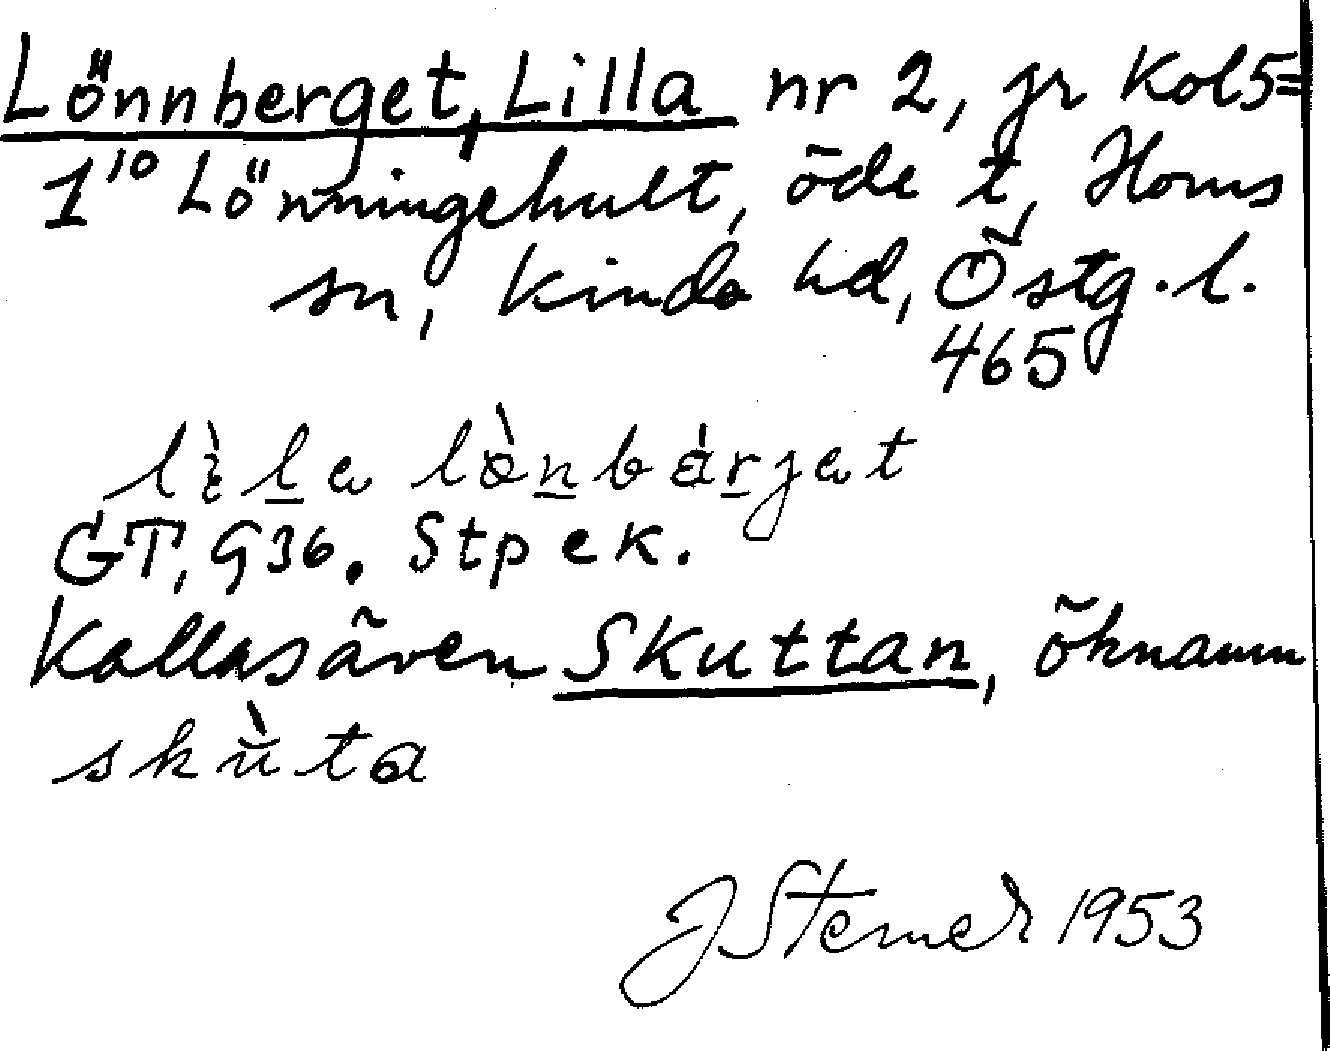 Lönnberget, Lilla nr 2, jr Kol5=
1¹⁰ Lönningehult, öde t, Horns
sn, Kinda hd, Östg.l.
465
GT, 936. Stpek.
Kallas även Skuttan, öknamn
skùta
J Sterner 1953